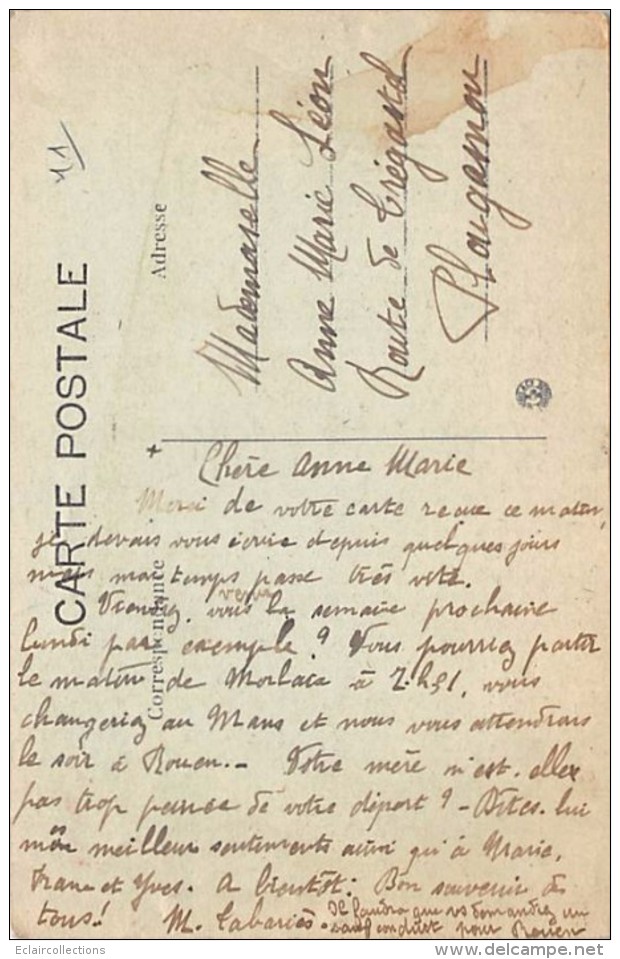 11
CARTE POSTALE
Correspondance
Adresse
Mademoiselle
Anne Marie Léon
Route de Trégastel
Plougasnou
Chère Anne Marie
Merci de votre carte recue ce matin,
je devais vous écrire depuis quelques jours
mais mon temps passe très vite.
Viendrez vous la semaine prochaine
lundi par exemple ? Vous pourriez partir
le matin de Morlaix à 7.h51, vous
changeriez au Mans et nous vous attendrons
le soir à Rouen. - Votre mère n'est-elle
pas trop peinée de votre départ ? - Dites-lui
mes meilleurs sentiments ainsi qu'à Marie,
Franc et Yves. A bientôt. Bon souvenir de
tous! M. Cabariès.
Il faudra que vs demandiez un
sauf conduit pour Rouen
Eclaircollections
www.delcampe.net